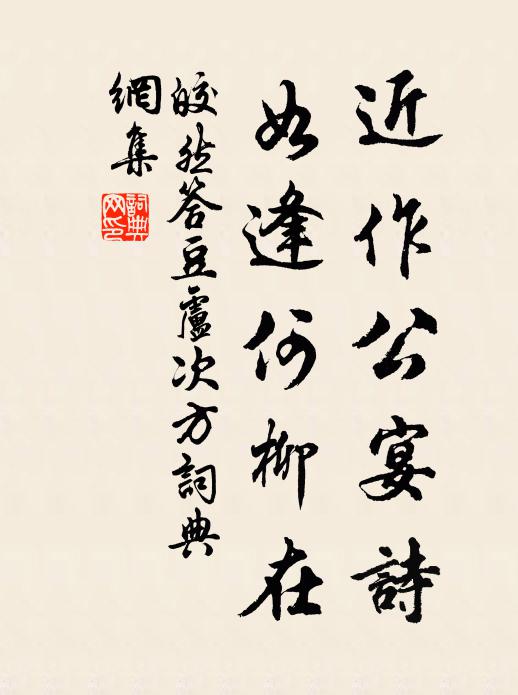 近作公宴詩
如逢何柳在
皎然答豆盧次方詞典
網集
詞典網印